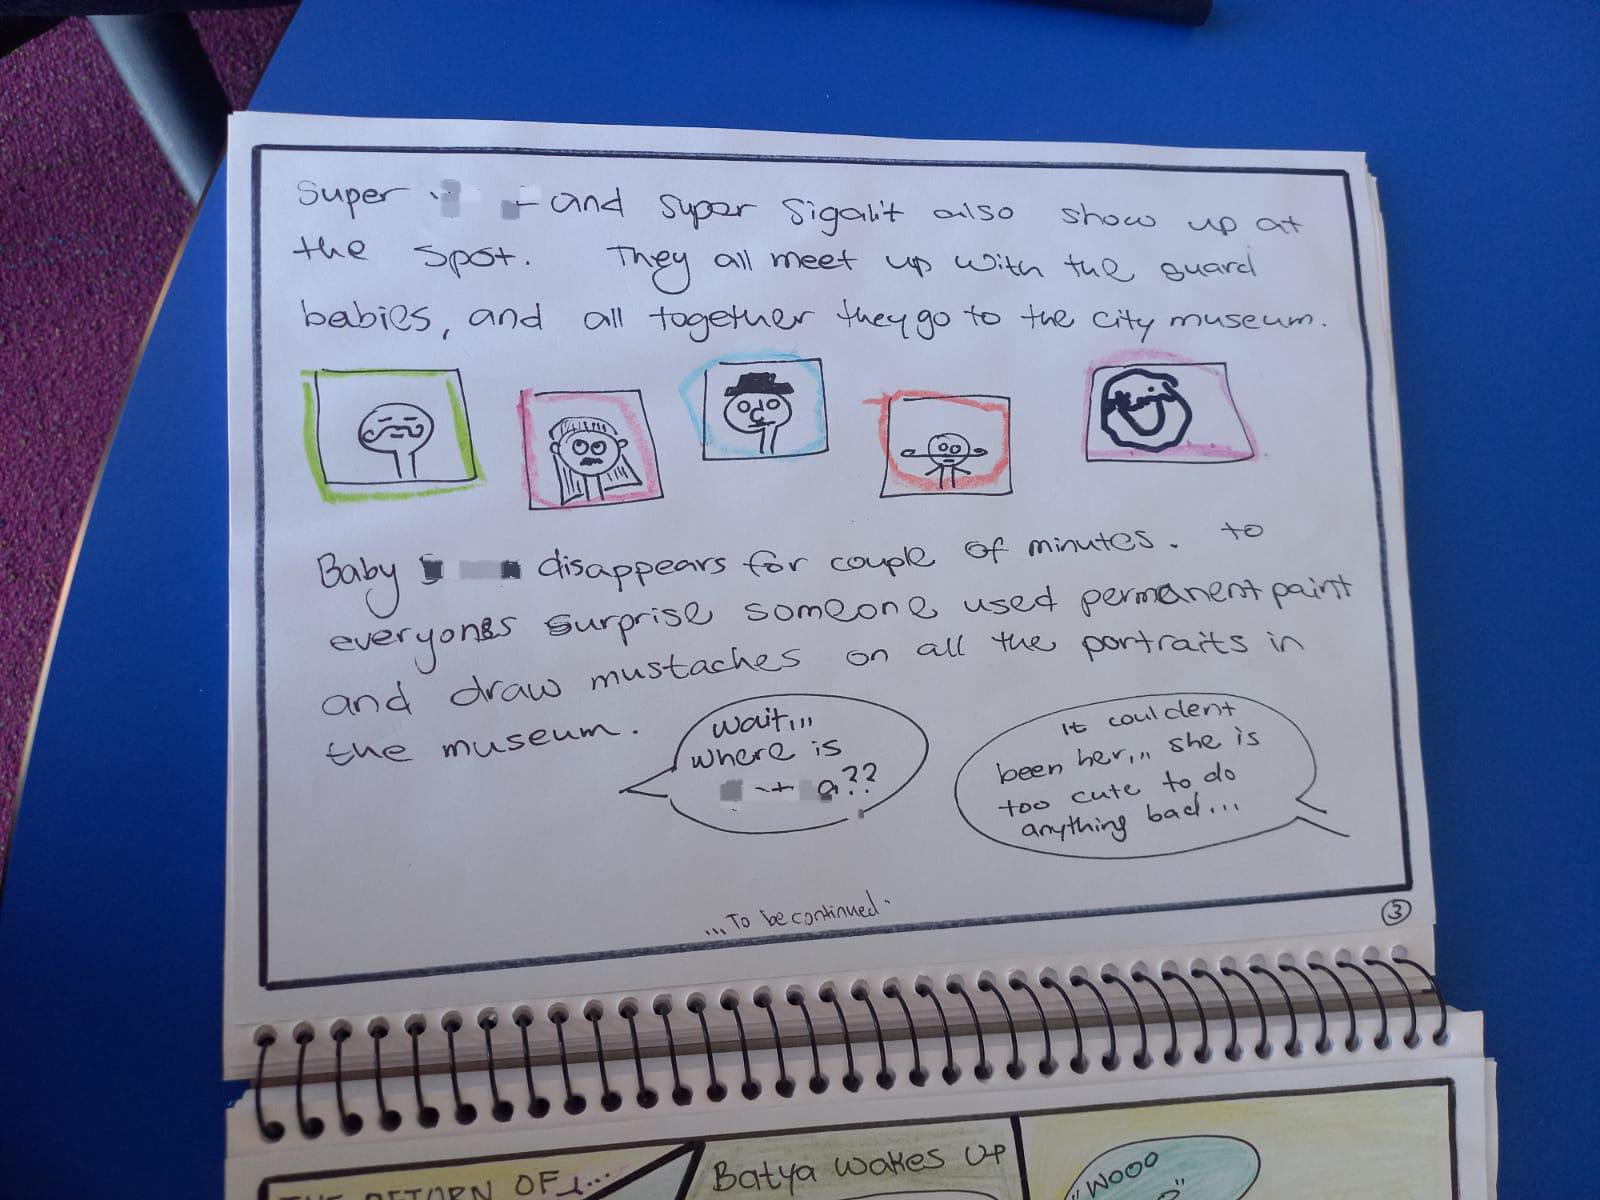 Super and super Sigalit also show up at
the spot. They all meet up with the guard
babies, and all together they go to the city museum.
Baby disappears for couple of minutes. to
everyones surprise someone used permanent paint
and draw mustaches on all the portraits in
the museum.
wait,,,
where is
??
It couldent
been her,,, she is
too cute to do
anything bad...
...To be continued.
3
RETURN OF
Batya wakes up
"WOOO